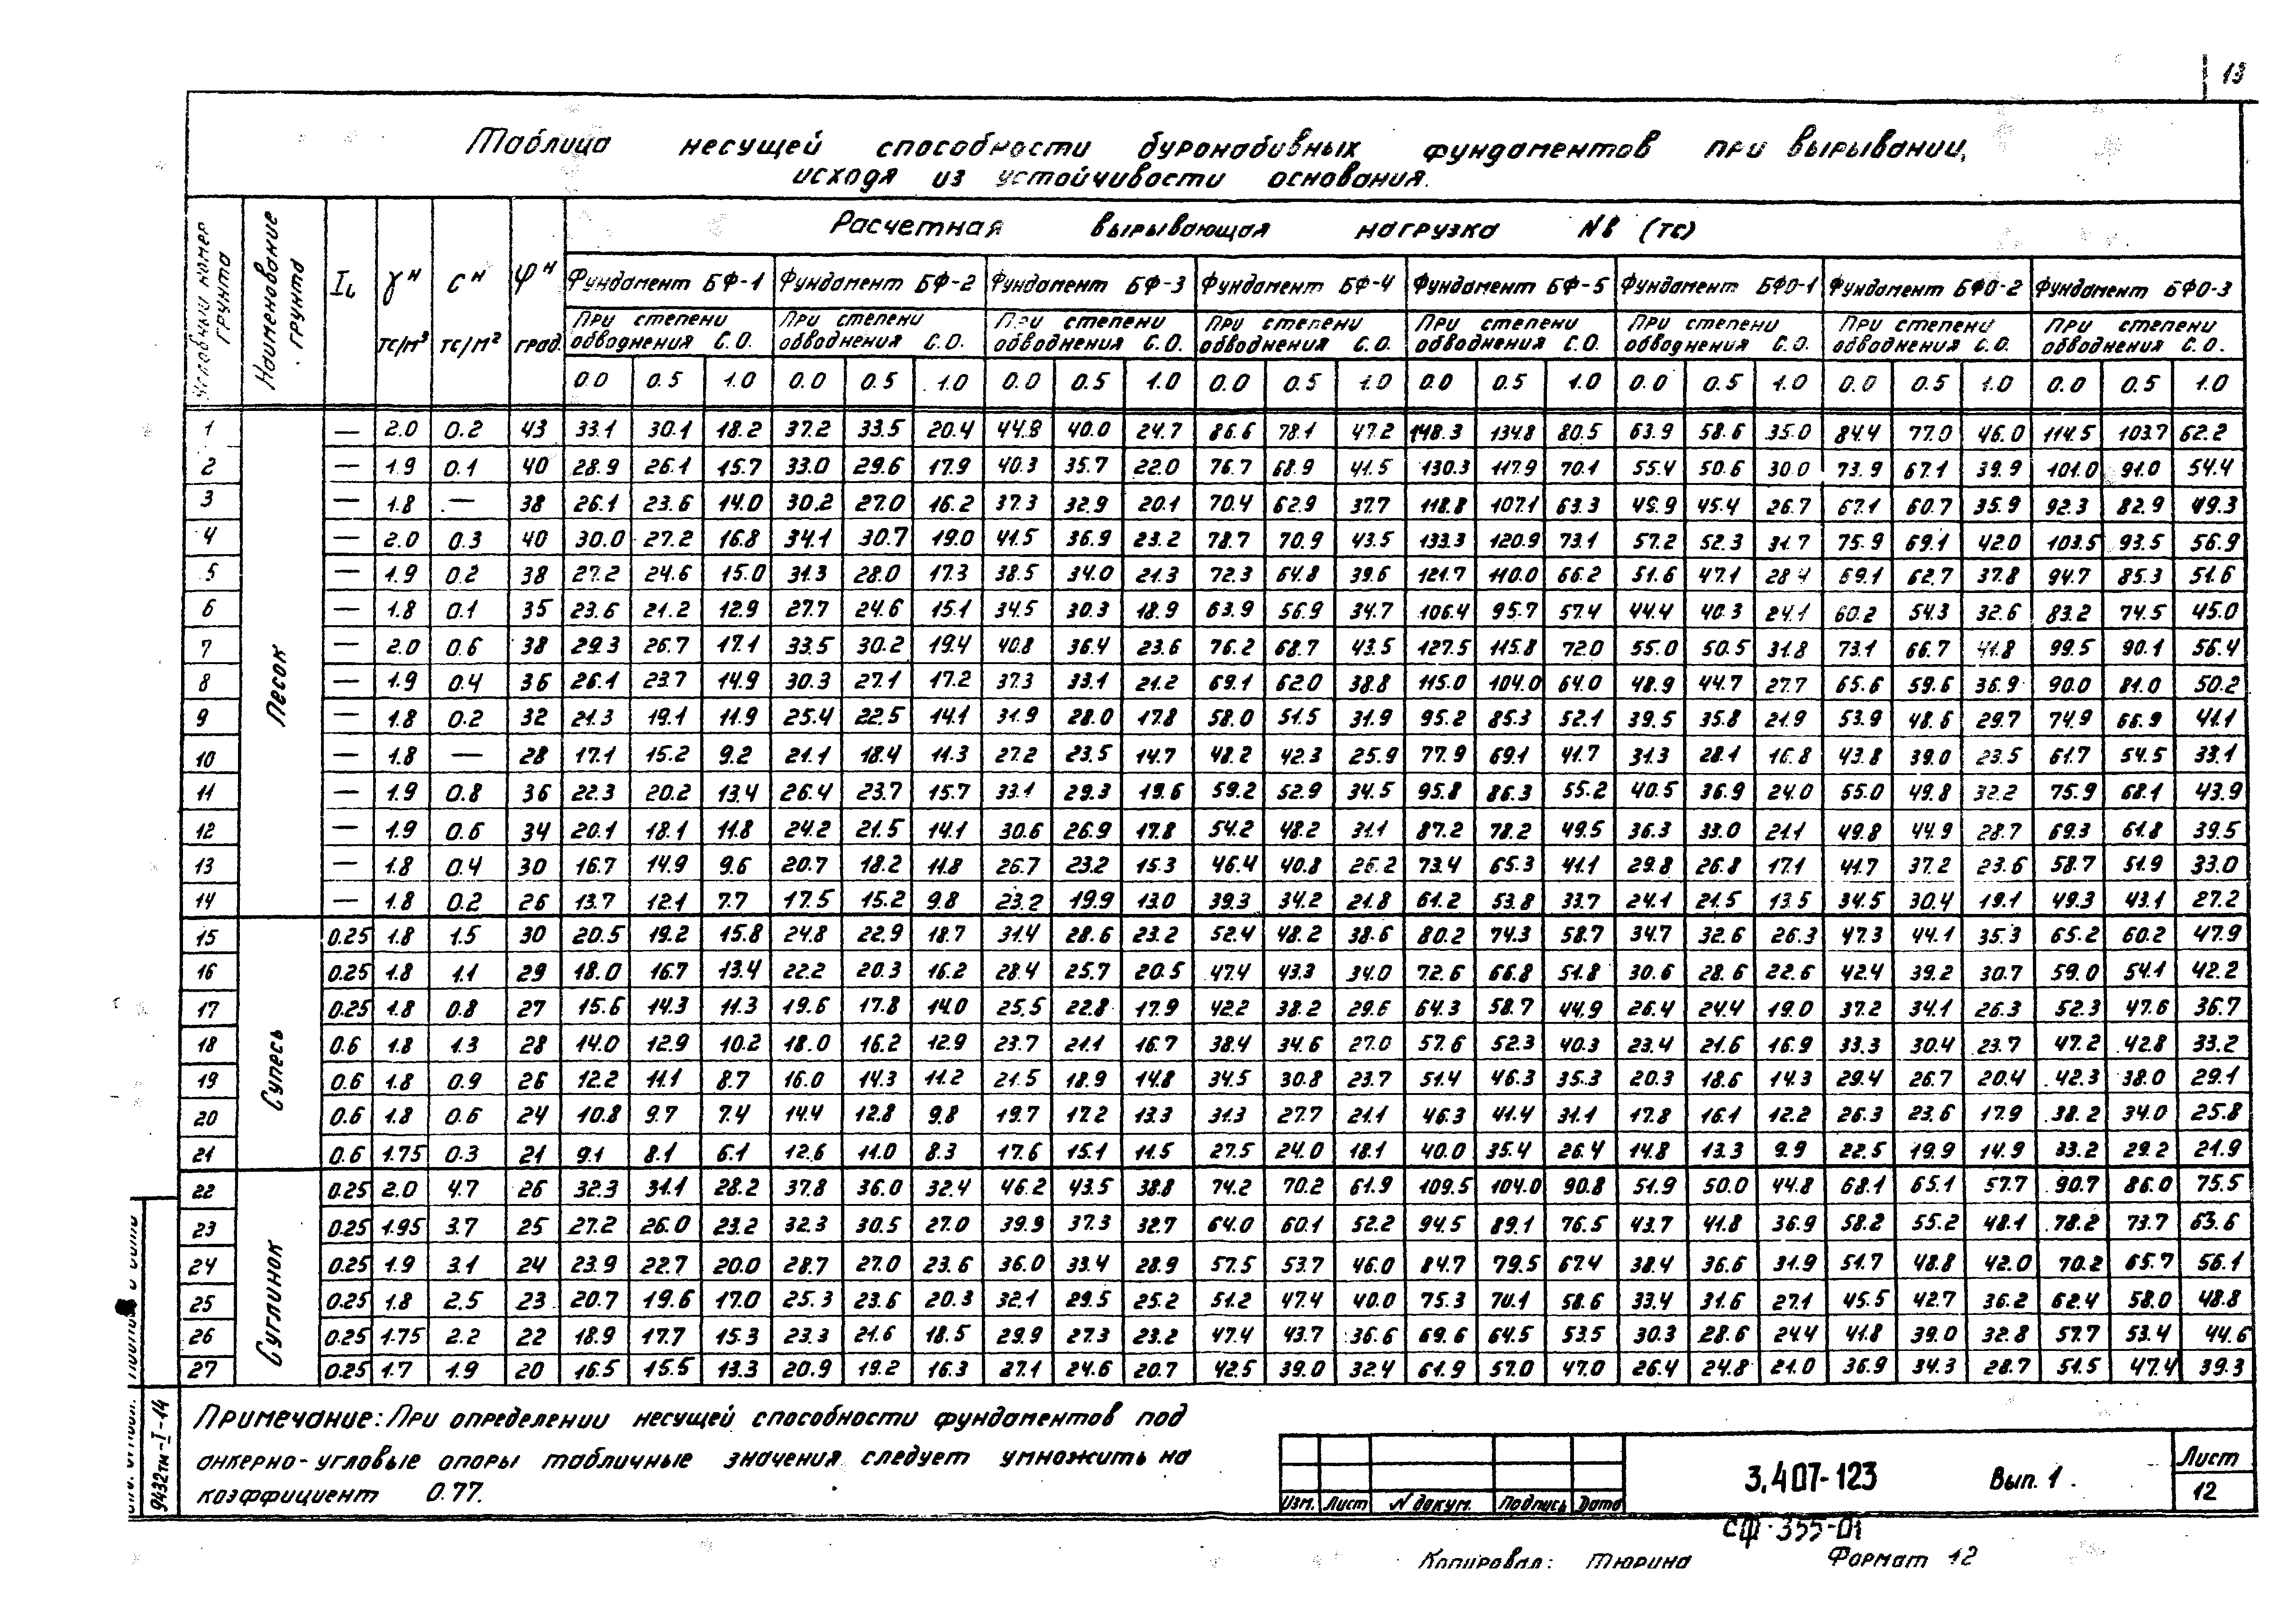 13
Таблица несущей способности буронабивных фундаментов при вырывании,
исходя из устойчивости основания.
Условный номер грунта
Наименование грунта
I L
γ н тс/м³
c н тс/м²
φ н град.
Расчетная вырывающая нагрузка Nв (тс)
Фундамент БФ-1 Фундамент БФ-2 Фундамент БФ-3 Фундамент БФ-4 Фундамент БФ-5 Фундамент БФО-1 Фундамент БФО-2 Фундамент БФО-3
При степени При степени При степени При степени При степени При степени При степени При степени
обводнения С.О. обводнения С.О. обводнения С.О. обводнения С.О. обводнения С.О. обводнения С.О. обводнения С.О. обводнения С.О.
0.0 0.5 1.0 0.0 0.5 1.0 0.0 0.5 1.0 0.0 0.5 1.0 0.0 0.5 1.0 0.0 0.5 1.0 0.0 0.5 1.0 0.0 0.5 1.0
Песок
1 — 2.0 0.2 43 33.1 30.1 18.2 37.2 33.5 20.4 44.8 40.0 24.7 86.6 78.1 47.2 148.3 134.8 80.5 63.9 58.6 35.0 84.4 77.0 46.0 114.5 103.7 62.2
2 — 1.9 0.1 40 28.9 26.1 15.7 33.0 29.6 17.9 40.3 35.7 22.0 76.7 68.9 41.5 130.3 117.9 70.1 55.4 50.6 30.0 73.9 67.1 39.9 101.0 91.0 54.4
3 — 1.8 — 38 26.1 23.6 14.0 30.2 27.0 16.2 37.3 32.9 20.1 70.4 62.9 37.7 118.8 107.1 63.3 49.9 45.4 26.7 67.1 60.7 35.9 92.3 82.9 49.3
4 — 2.0 0.3 40 30.0 27.2 16.8 34.1 30.7 19.0 41.5 36.9 23.2 78.7 70.9 43.5 133.3 120.9 73.1 57.2 52.3 31.7 75.9 69.1 42.0 103.5 93.5 56.9
5 — 1.9 0.2 38 27.2 24.6 15.0 31.3 28.0 17.3 38.5 34.0 21.3 72.3 64.8 39.6 121.7 110.0 66.2 51.6 47.1 28.4 69.1 62.7 37.8 94.7 85.3 51.6
6 — 1.8 0.1 35 23.6 21.2 12.9 27.7 24.6 15.1 34.5 30.3 18.9 63.9 56.9 34.7 106.4 95.7 57.4 44.4 40.3 24.1 60.2 54.3 32.6 83.2 74.5 45.0
7 — 2.0 0.6 38 29.3 26.7 17.1 33.5 30.2 19.4 40.8 36.4 23.6 76.2 68.7 43.5 127.5 115.8 72.0 55.0 50.5 31.8 73.1 66.7 41.8 99.5 90.1 56.4
8 — 1.9 0.4 36 26.1 23.7 14.9 30.3 27.1 17.2 37.3 33.1 21.2 69.1 62.0 38.8 115.0 104.0 64.0 48.9 44.7 27.7 65.6 59.6 36.9 90.0 81.0 50.2
9 — 1.8 0.2 32 21.3 19.1 11.9 25.4 22.5 14.1 31.9 28.0 17.8 58.0 51.5 31.9 95.2 85.3 52.1 39.5 35.8 21.9 53.9 48.6 29.7 74.9 66.9 41.1
10 — 1.8 — 28 17.1 15.2 9.2 21.1 18.4 11.3 27.2 23.5 14.7 48.2 42.3 25.9 77.9 69.1 41.7 31.3 28.1 16.8 43.8 39.0 23.5 61.7 54.5 33.1
11 — 1.9 0.8 36 22.3 20.2 13.4 26.4 23.7 15.7 33.1 29.3 19.6 59.2 52.9 34.5 95.8 86.3 55.2 40.5 36.9 24.0 55.0 49.8 32.2 75.9 68.1 43.9
12 — 1.9 0.6 34 20.1 18.1 11.8 24.2 21.5 14.1 30.6 26.9 17.8 54.2 48.2 31.1 87.2 78.2 49.5 36.3 33.0 21.1 49.8 44.9 28.7 69.3 61.8 39.5
13 — 1.8 0.4 30 16.7 14.9 9.6 20.7 18.2 11.8 26.7 23.2 15.3 46.4 40.8 26.2 73.4 65.3 41.1 29.8 26.8 17.1 41.7 37.2 23.6 58.7 51.9 33.0
14 — 1.8 0.2 26 13.7 12.1 7.7 17.5 15.2 9.8 23.2 19.9 13.0 39.3 34.2 21.8 61.2 53.8 33.7 24.1 21.5 13.5 34.5 30.4 19.1 49.3 43.1 27.2
Супесь
15 0.25 1.8 1.5 30 20.5 19.2 15.8 24.8 22.9 18.7 31.4 28.6 23.2 52.4 48.2 38.6 80.2 74.3 58.7 34.7 32.6 26.3 47.3 44.1 35.3 65.2 60.2 47.9
16 0.25 1.8 1.1 29 18.0 16.7 13.4 22.2 20.3 16.2 28.4 25.7 20.5 47.4 43.3 34.0 72.6 66.8 51.8 30.6 28.6 22.6 42.4 39.2 30.7 59.0 54.1 42.2
17 0.25 1.8 0.8 27 15.6 14.3 11.3 19.6 17.8 14.0 25.5 22.8 17.9 42.2 38.2 29.6 64.3 58.7 44.9 26.4 24.4 19.0 37.2 34.1 26.3 52.3 47.6 36.7
18 0.6 1.8 1.3 28 14.0 12.9 10.2 18.0 16.2 12.9 23.7 21.1 16.7 38.4 34.6 27.0 57.6 52.3 40.3 23.4 21.6 16.9 33.3 30.4 23.7 47.2 42.8 33.2
19 0.6 1.8 0.9 26 12.2 11.1 8.7 16.0 14.3 11.2 21.5 18.9 14.8 34.5 30.8 23.7 51.4 46.3 35.3 20.3 18.6 14.3 29.4 26.7 20.4 42.3 38.0 29.1
20 0.6 1.8 0.6 24 10.8 9.7 7.4 14.4 12.8 9.8 19.7 17.2 13.3 31.3 27.7 21.1 46.3 41.4 31.1 17.8 16.1 12.2 26.3 23.6 17.9 38.2 34.0 25.8
21 0.6 1.75 0.3 21 9.1 8.1 6.1 12.6 11.0 8.3 17.6 15.1 11.5 27.5 24.0 18.1 40.0 35.4 26.4 14.8 13.3 9.9 22.5 19.9 14.9 33.2 29.2 21.9
Суглинок
22 0.25 2.0 4.7 26 32.3 31.1 28.2 37.8 36.0 32.4 46.2 43.5 38.8 74.2 70.2 61.9 109.5 104.0 90.8 51.9 50.0 44.8 68.1 65.1 57.7 90.7 86.0 75.5
23 0.25 1.95 3.7 25 27.2 26.0 23.2 32.3 30.5 27.0 39.9 37.3 32.7 64.0 60.1 52.2 94.5 89.1 76.5 43.7 41.8 36.9 58.2 55.2 48.1 78.2 73.7 63.6
24 0.25 1.9 3.1 24 23.9 22.7 20.0 28.7 27.0 23.6 36.0 33.4 28.9 57.5 53.7 46.0 84.7 79.5 67.4 38.4 36.6 31.9 51.7 48.8 42.0 70.2 65.7 56.1
25 0.25 1.8 2.5 23 20.7 19.6 17.0 25.3 23.6 20.3 32.1 29.5 25.2 51.2 47.4 40.0 75.3 70.1 58.6 33.4 31.6 27.1 45.5 42.7 36.2 62.4 58.0 48.8
26 0.25 1.75 2.2 22 18.9 17.7 15.3 23.3 21.6 18.5 29.9 27.3 23.2 47.4 43.7 36.6 69.6 64.5 53.5 30.3 28.6 24.4 41.8 39.0 32.8 57.7 53.4 44.6
27 0.25 1.7 1.9 20 16.5 15.5 13.3 20.9 19.2 16.3 27.1 24.6 20.7 42.5 39.0 32.4 61.9 57.0 47.0 26.4 24.8 21.0 36.9 34.3 28.7 51.5 47.4 39.3
Примечание: При определении несущей способности фундаментов под
анкерно-угловые опоры табличные значения следует умножить на
коэффициент 0.77.
9432тм-I-14
Изм. Лист N докум. Подпись Дата
3.407-123 Вып. 1.
Лист
12
СФ 355-01
Копировал: Тюрина Формат 12